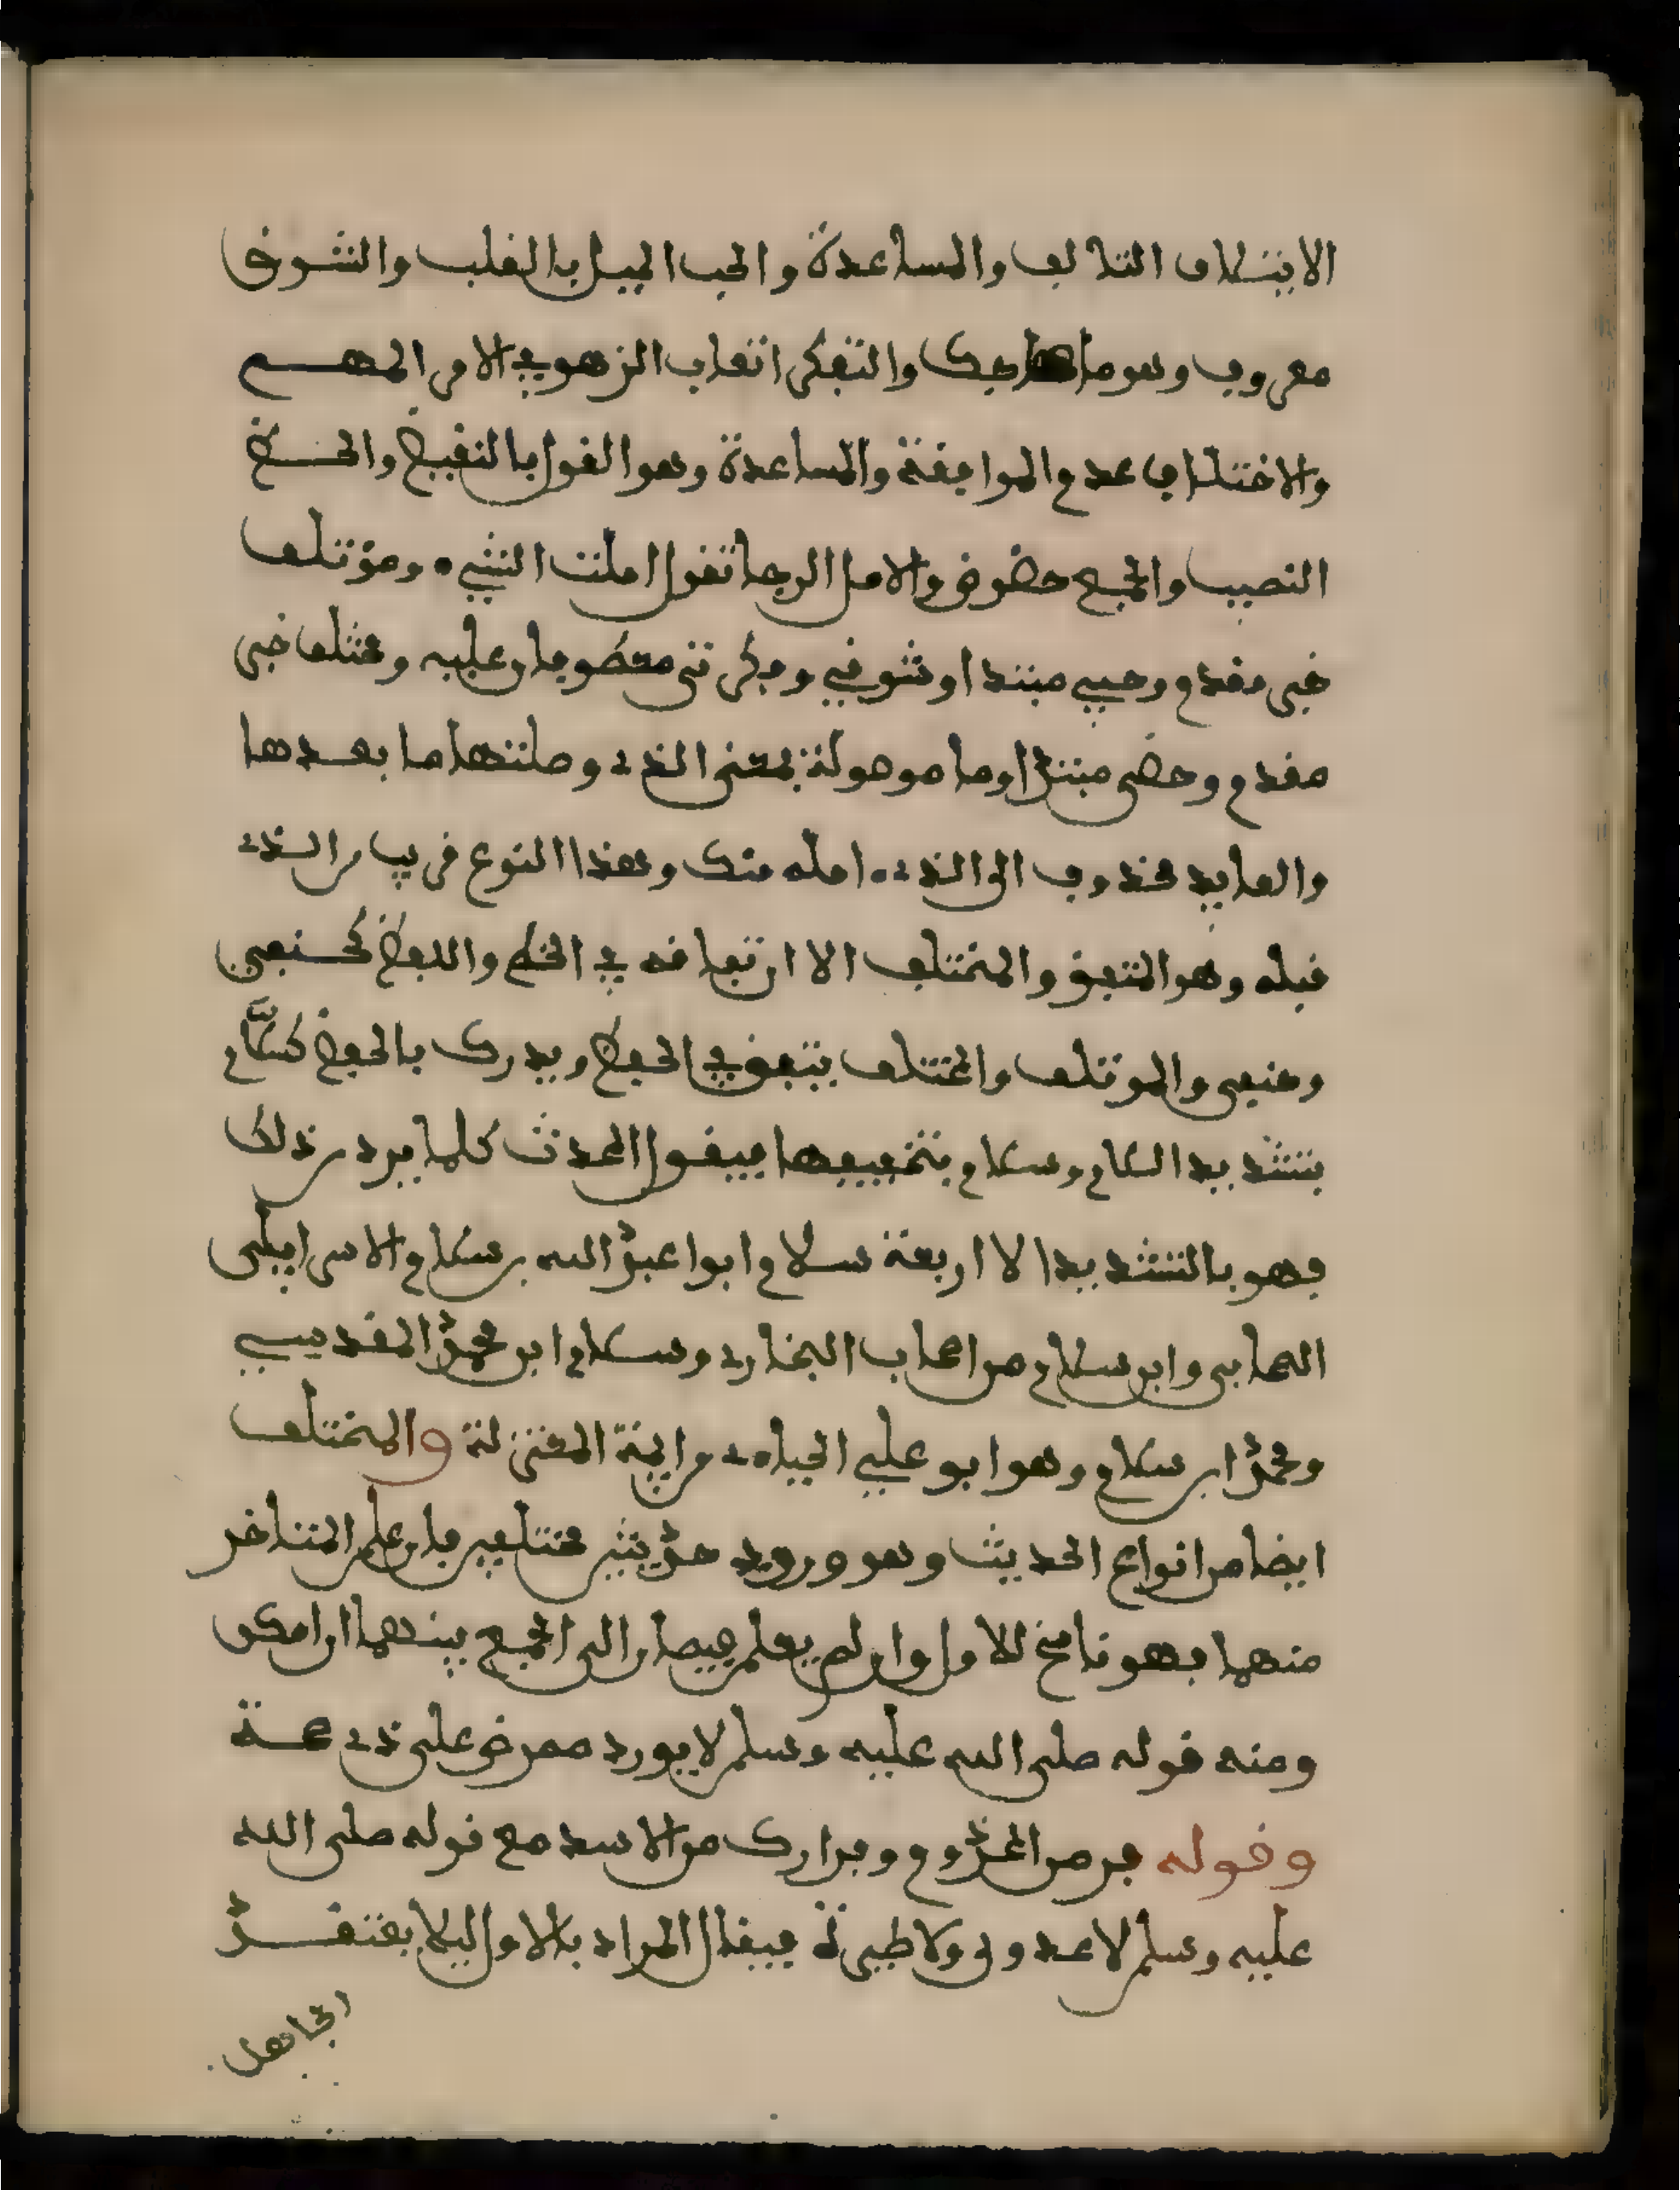 الايتلاف التئالف والمساعدة والحب الميل بالقلب والشوق
معروف وهو ما والتفكر اتعاب الزهو في الامر المهم
والاختلاف عدم الموافقة والمساعدة وهوا القول بالنقيض والحظ
النصيب والجمع حضوض والامل الرجا تقول املت الشيء ومؤتلف
خبر مقدم وحبي مبتدا وشوقي وفكرتي معطوفان عليه ومختلف خبر
مقدم وحضي مبتدا وما موصولة بمعنى الذي وصلتها ما بعدها
والعايد محذوف اي الذي امله منك وهذا النوع قريب من الذي
قبله وهو المتفق والمختلف الا ان تفارقه في الخط واللفظ كحنفي
وحنفي والموتلف والمختلف يتفق في الخط ويدرك بالحفظ كسلّام
بتشديد اللام وسلام بتخفيفها فيقول المحدث كلما يرد من ذلك
فهو بالتشديد الا اربعة سلام ابوا عبد الله بن سلام الاسراييلي
الصحابي وابن سلام من اصحاب البخاري وسلام ابن محمد المقدسي
ومحمد ابن سلام وهوا بو علي الجباءي من ايمة المعتزلة والمختلف
ايضا من انواع الحديث وهو ورود حديثين مختلفين فان علم المتاخر
منهما فهو ناسخ للاول وان لم يعلم فيصار الى الجمع بينهما ان امكن
ومنه قوله صلى الله عليه وسلم لا يورد ممرض على ذي صحة
وقوله فر من المجذوم فرارك من الاسد مع قوله صلى الله
عليه وسلم لا عدوى ولا طيرة فيقال المراد بالاول ليلا يعتقد
الجاهل